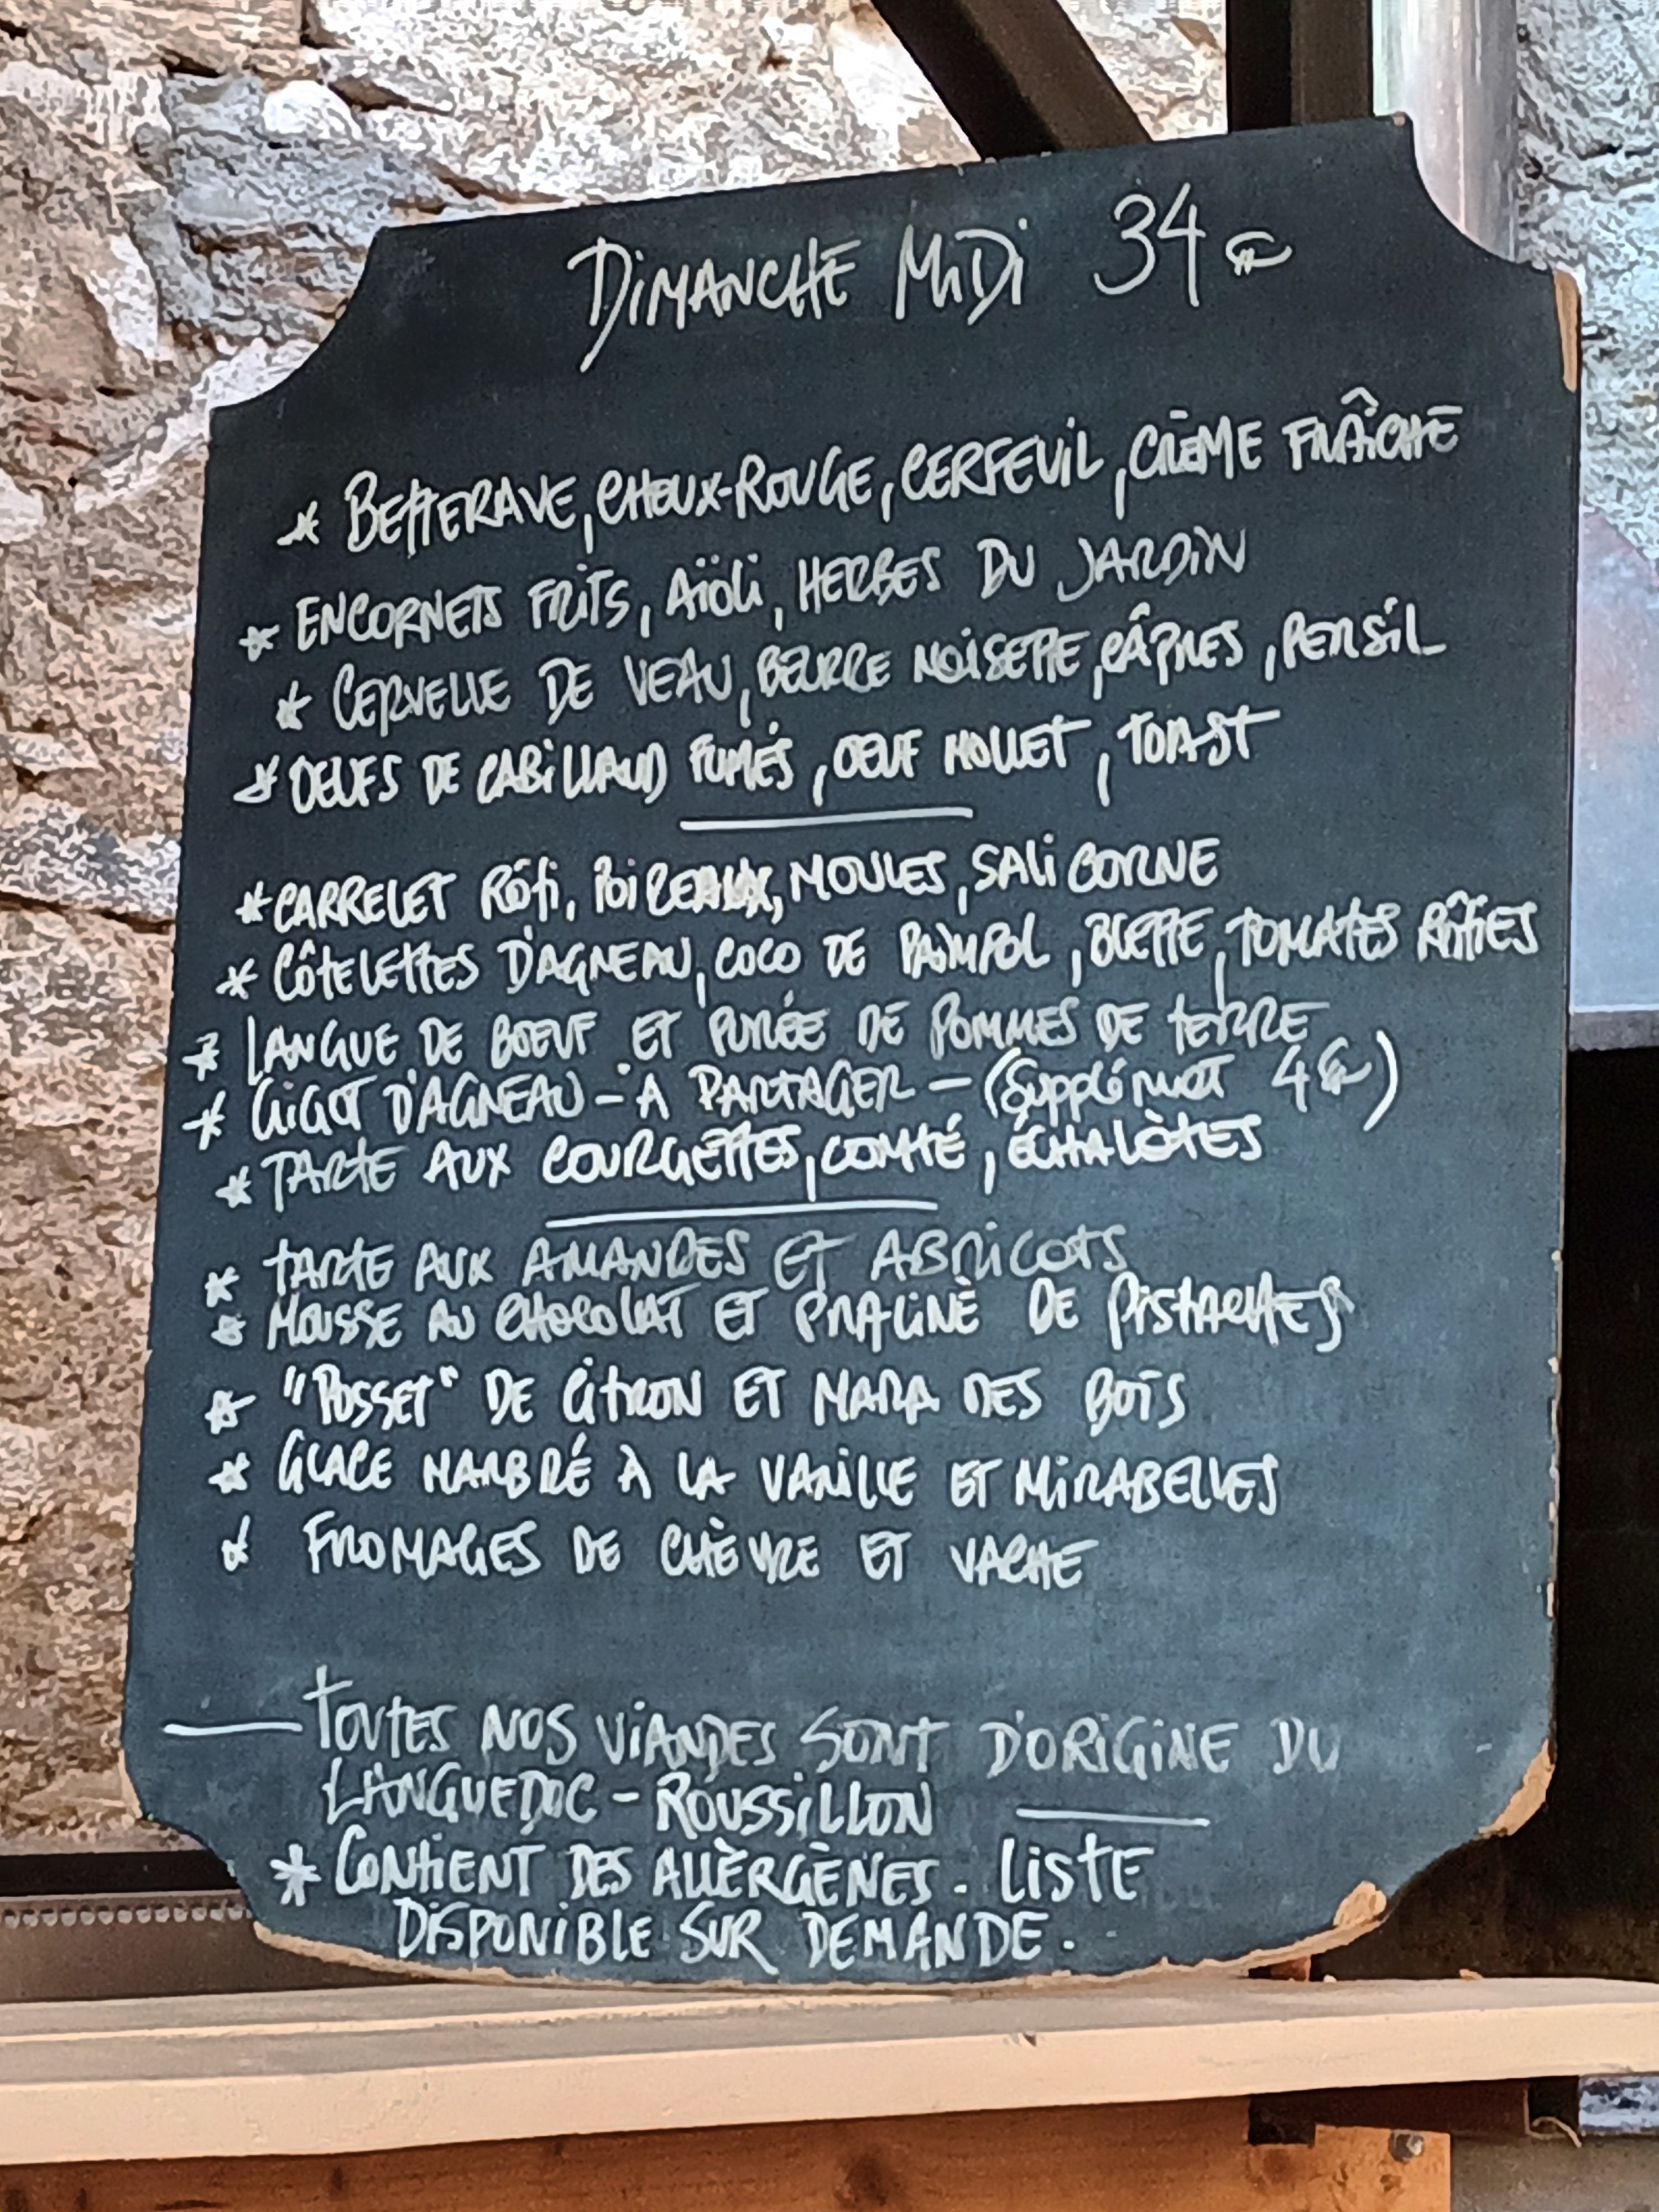 DIMANCHE MIDI 34€
* BETTERAVE, CHOUX-ROUGE, CERFEUIL, CRÈME FRAÎCHE
* ENCORNETS FRITS, AÏOLI, HERBES DU JARDIN
* CERVELLE DE VEAU, BEURRE NOISETTE, CÂPRES, PERSIL
* OEUFS DE CABILLAUD FUMÉS, OEUF MOLLET, TOAST
* CARRELET RÔTI, POIREAUX, MOULES, SALICORNE
* CÔTELETTES D'AGNEAU, COCO DE PAIMPOL, BLETTE, TOMATES RÔTIES
* LANGUE DE BOEUF ET PURÉE DE POMMES DE TERRE
* GIGOT D'AGNEAU - À PARTAGER - (Supplément 4€)
* TARTE AUX COURGETTES, COMTÉ, ÉCHALÒTES
* TARTE AUX AMANDES ET ABRICOTS
* MOUSSE AU CHOCOLAT ET PRALINÉ DE PISTACHES
* "POSSET" DE CITRON ET MARA DES BOIS
* GLACE MARBRÉ À LA VANILLE ET MIRABELLES
* FROMAGES DE CHÈVRE ET VACHE
— TOUTES NOS VIANDES SONT D'ORIGINE DU
LANGUEDOC - ROUSSILLON —
* CONTIENT DES ALLÈRGÈNES. LISTE
DISPONIBLE SUR DEMANDE.